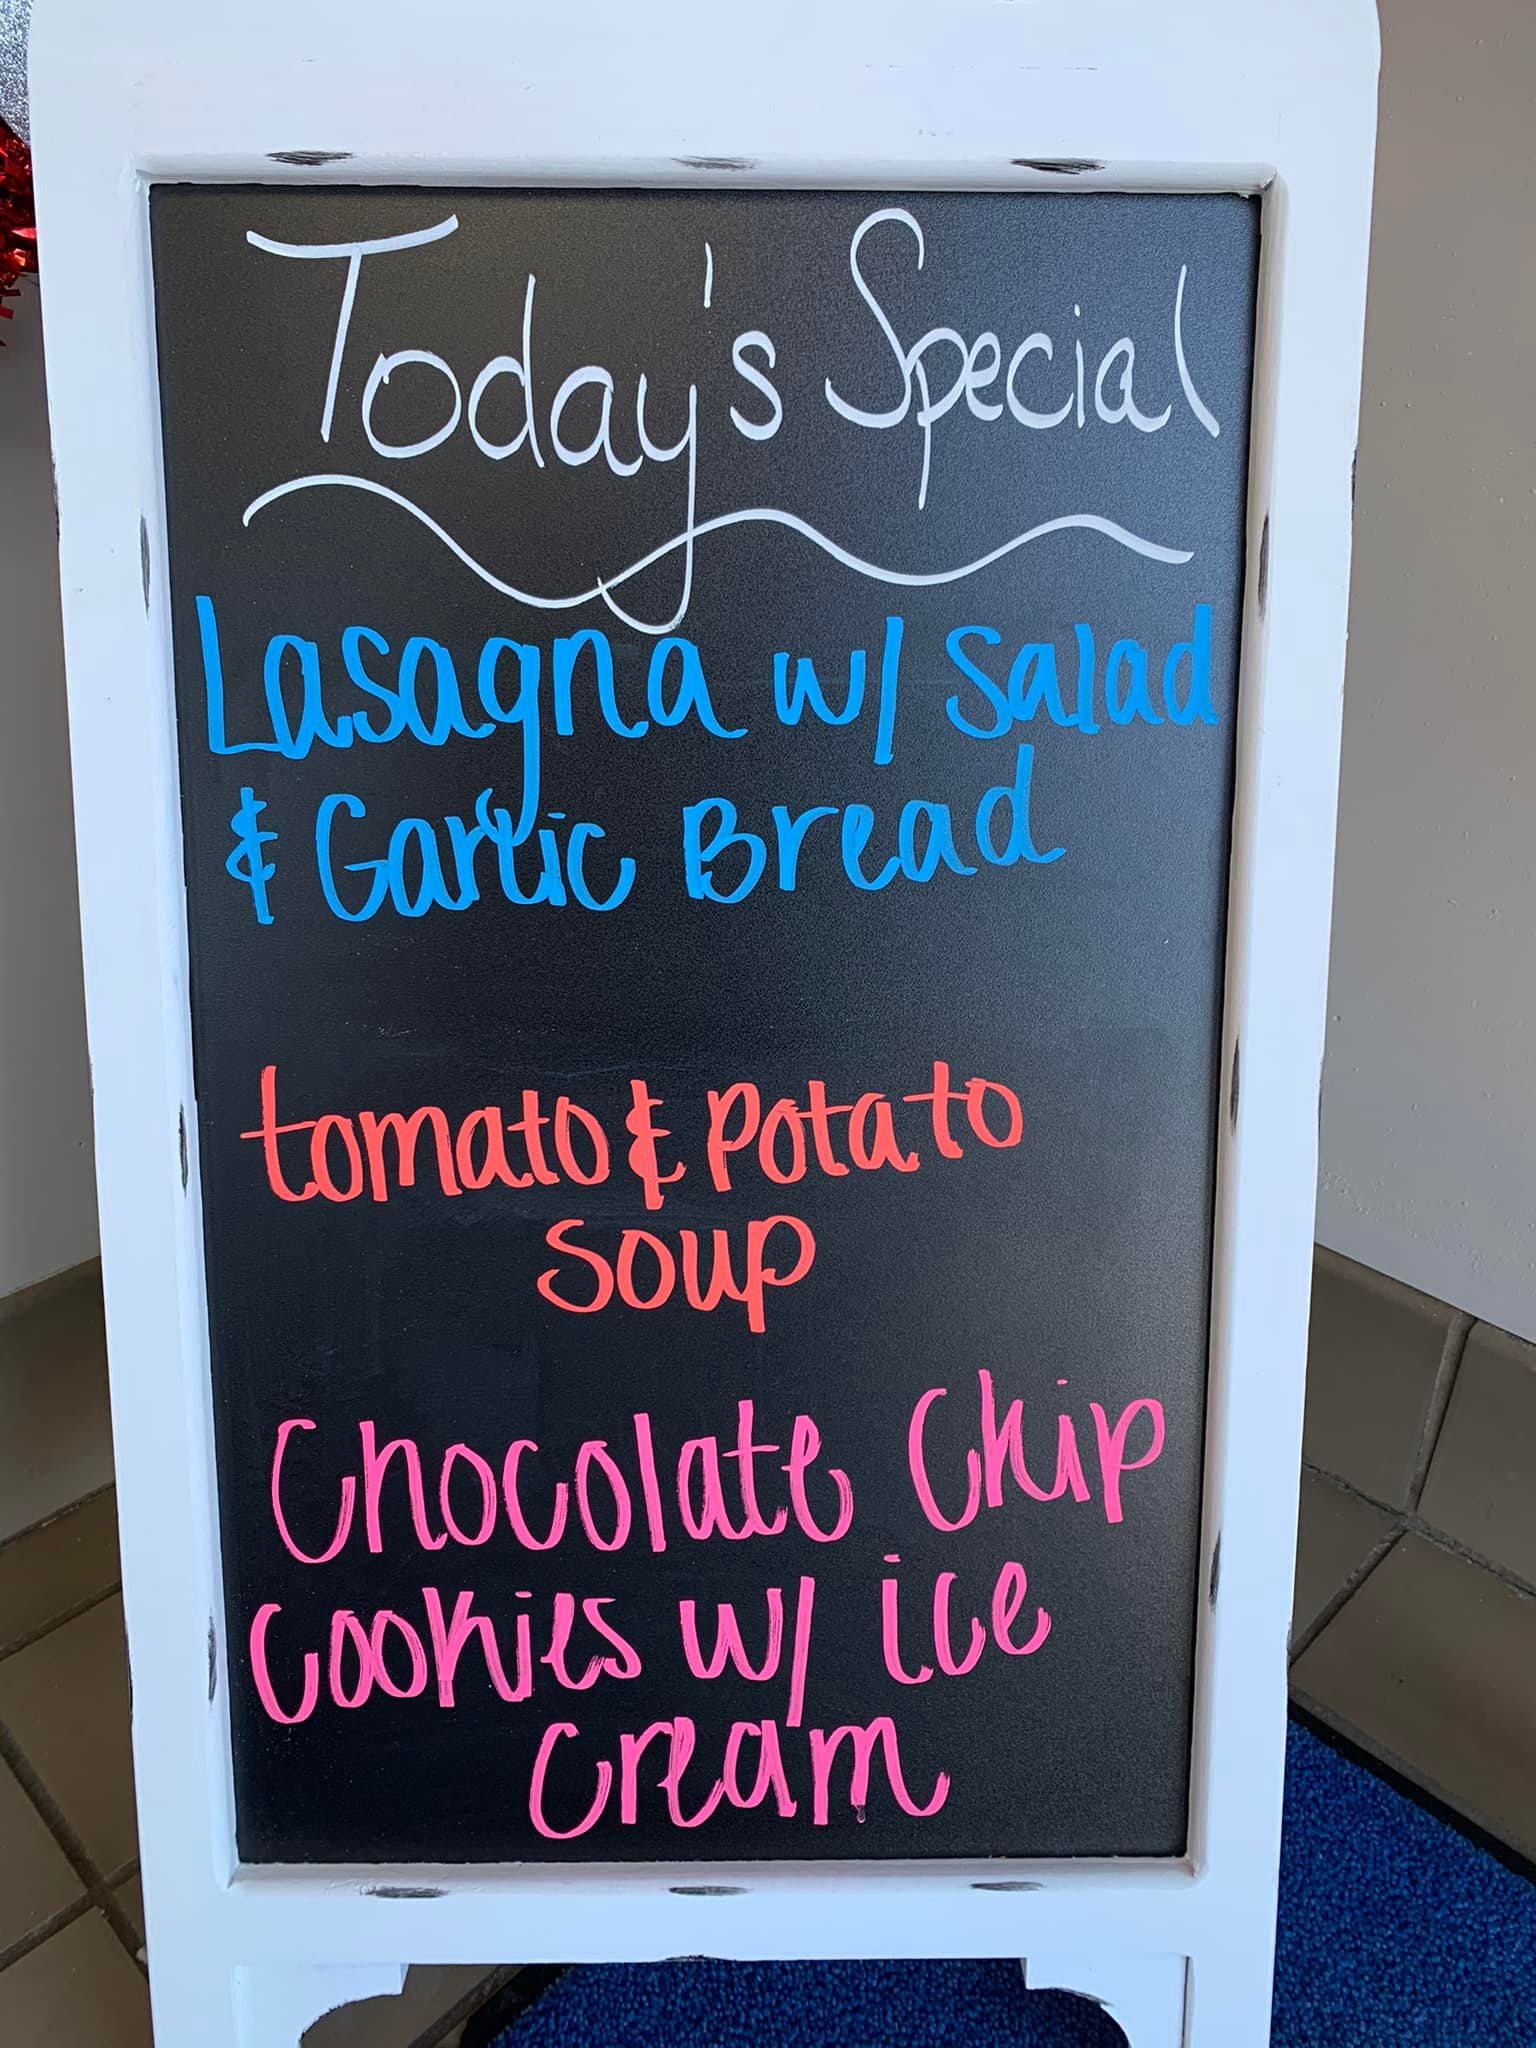 Today's Special
Lasagna w/ Salad
& Garlic Bread
tomato & Potato
Soup
Chocolate Chip
Cookies w/ ice
Cream